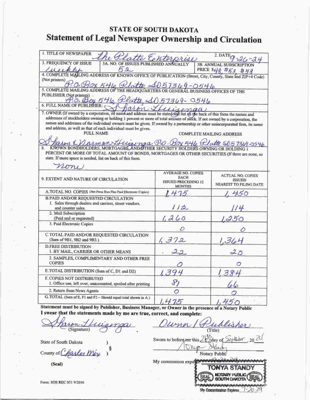 STATE OF SOUTH DAKOTA
Statement of Legal Newspaper Ownership and Circulation
1. TITLE OF NEWSPAPER The Platte Enterprise
2. DATE 9-26-24
3. FREQUENCY OF ISSUE weekly
3A. NO. OF ISSUES PUBLISHED ANNUALLY 52
3B. ANNUAL SUBSCRIPTION PRICE
4. COMPLETE MAILING ADDRESS OF KNOWN OFFICE OF PUBLICATION (Street, City, County, State and ZIP+4 Code) (Not printers)
P.O. Box 546 Platte SD 57369-0546
5. COMPLETE MAILING ADDRESS OF THE HEADQUARTERS OR GENERAL BUSINESS OFFICES OF THE PUBLISHER (Not printer)
P.O. Box 546 Platte, SD 57369-0546
6. FULL NAME OF PUBLISHER: Sharon Huizenga
7. OWNER (If owned by a corporation, its name and address must be stated
addresses of stockholders owning or holding 1 percent or more of total amount of stock. If not owned by a corporation, the
names and addresses of the individual owners must be given. If owned by a partnership or other unincorporated firm, its name
and address, as well as that of each individual must be given.
FULL NAME COMPLETE MAILING ADDRESS
Huizenga P.O. Box 546 Platte SD 57369-0546
8. KNOWN BONDHOLDERS, MORTGAGEES, AND OTHER SECURITY HOLDERS OWNING OR HOLDING 1
PERCENT OR MORE OF TOTAL AMOUNT OF BONDS, MORTGAGES OR OTHER SECURITIES (If there are none, so
state. If more space is needed, list on back of this form.
None
9. EXTENT AND NATURE OF CIRCULATION
AVERAGE NO. COPIES EACH ISSUES PRECEDING 12 MONTHS
ACTUAL NO. COPIES ISSUED NEAREST TO FILING DATE
A. TOTAL NO. COPIES 1,475 1,450
B. PAID AND/OR REQUESTED CIRCULATION
1. Sales through dealers and carriers, street vendors, and counter sales. 112 114
2. Mail Subscription (Paid and or requested) 1,260 1,250
3. Paid Electronic Copies 0 0
C. TOTAL PAID AND/OR REQUESTED CIRCULATION
(Sum of 9B1, 9B2 and 9B3.) 1,372 1,364
D. FREE DISTRIBUTION
1. BY MAIL, CARRIER OR OTHER MEANS 22 20
2. SAMPLES, COMPLIMENTARY AND OTHER FREE COPIES 0 0
E. TOTAL DISTRIBUTION (Sum of C, D1 and D2) 1,394 1,384
F. COPIES NOT DISTRIBUTED
1. Office use, left over, unaccounted, spoiled after printing 81 66
2. Return from News Agents 0 0
G. TOTAL (Sum of E, F1 and F2 - Should equal total shown in A.) 1,475 1,450
Statement must be signed by Publisher, Business Manager, or Owner in the presence of a Notary Public
I swear that the statements made by me are true, correct, and complete:
Sharon Huizenga Owner / Publisher
(Signature) (Title)
State of South Dakota )
) §
County of Charles Mix )
Sworn to before me this
Notary Public
My commission expires
TONYA STANDY
NOTARY PUBLIC
SOUTH DAKOTA
SEAL SEAL
My Commission Expires